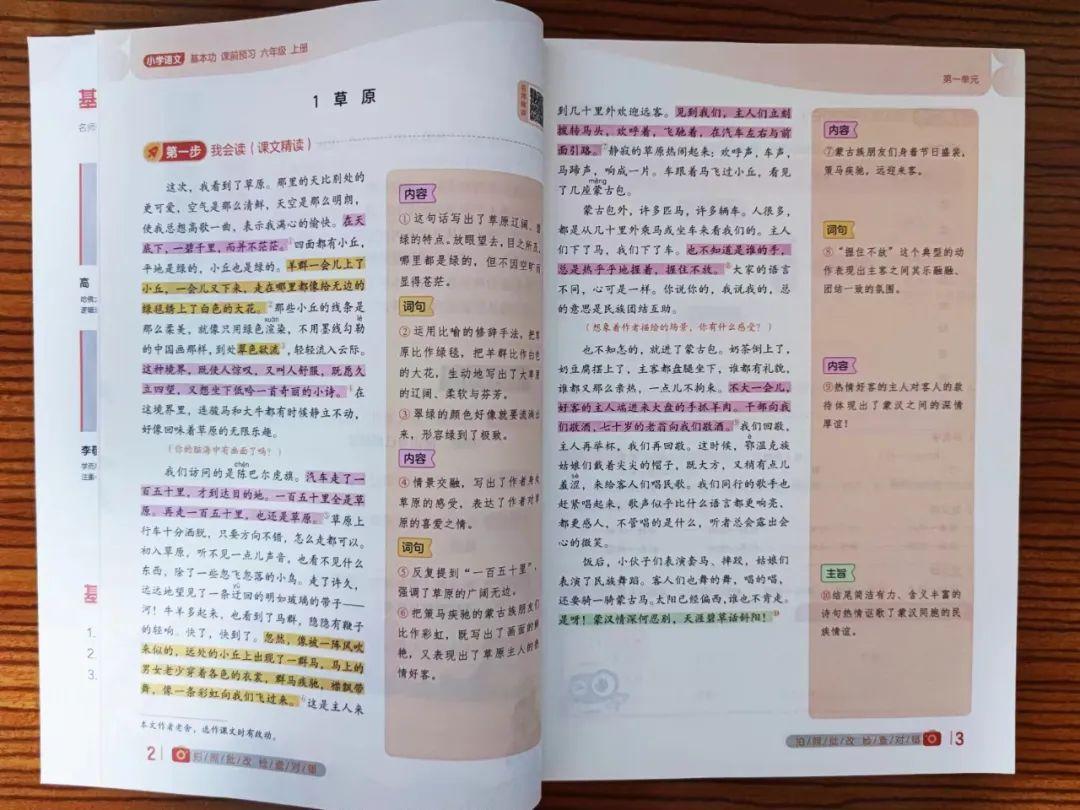 小学语文 基本功 课前预习 六年级 上册
1 草 原
第一步 我会读（课文精读）
这次，我看到了草原。那里的天比别处的
更可爱，空气是那么清鲜，天空是那么明朗，
使我总想高歌一曲，表示我满心的愉快。在天
底下，一碧千里，而并不茫茫。①四面都有小丘，
平地是绿的，小丘也是绿的。羊群一会儿上了
小丘，一会儿又下来，走在哪里都像给无边的
绿毯绣上了白色的大花。②那些小丘的线条是
xuàn lè
那么柔美，就像只用绿色渲染，不用墨线勾勒
的中国画那样，到处翠色欲流③，轻轻流入云际。
这种境界，既使人惊叹，又叫人舒服，既愿久
立四望，又想坐下低吟一首奇丽的小诗。④在
这境界里，连骏马和大牛都有时候静立不动，
好像回味着草原的无限乐趣。
（你的脑海中有画面了吗？）
chén
我们访问的是陈巴尔虎旗。汽车走了一
百五十里，才到达目的地。一百五十里全是草
原。再走一百五十里，也还是草原。⑤草原上
行车十分洒脱，只要方向不错，怎么走都可以。
初入草原，听不见一点儿声音，也看不见什么
东西，除了一些忽飞忽落的小鸟。走了许久，
yū
远远地望见了一条迂回的明如玻璃的带子——
河！牛羊多起来，也看到了马群，隐隐有鞭子
的轻响。快了，快到了。忽然，像被一阵风吹
来似的，远处的小丘上出现了一群马，马上的
男女老少穿着各色的衣裳，群马疾驰，襟飘带
舞，像一条彩虹向我们飞过来。⑥这是主人来
本文作者老舍，选作课文时有改动。
2 拍/照/批/改 检/查/对/错
内容
①这句话写出了草原辽阔、
绿的特点。放眼望去，目之所及，
哪里都是绿的，但不因空旷而
显得苍茫。
词句
②运用比喻的修辞手法，把草
原比作绿毯，把羊群比作白色
的大花，生动地写出了大草原
的辽阔、柔软与芬芳。
③翠绿的颜色好像就要流淌出
来，形容绿到了极致。
内容
④情景交融，写出了作者身处
草原的感受，表达了作者对草
原的喜爱之情。
词句
⑤反复提到“一百五十里”，
强调了草原的广阔无边。
⑥把策马疾驰的蒙古族朋友们
比作彩虹，既写出了画面的鲜
艳，又表现出了草原主人的热
情好客。
第一单元
到几十里外欢迎远客。见到我们，主人们立刻
拨转马头，欢呼着，飞驰着，在汽车左右与前
面引路。⑦静寂的草原热闹起来：欢呼声，车声，
马蹄声，响成一片。车跟着马飞过小丘，看见
měng
了几座蒙古包。
蒙古包外，许多匹马，许多辆车。人很多，
都是从几十里外乘马或坐车来看我们的。主人
们下了马，我们下了车。也不知道是谁的手，
总是热乎乎地握着，握住不放。⑧大家的语言
不同，心可是一样。你说你的，我说我的，总
的意思是民族团结互助。
（想象着作者描绘的场景，你有什么感受？）
也不知怎的，就进了蒙古包。奶茶倒上了，
奶豆腐摆上了，主客都盘腿坐下，谁都有礼貌，
谁都又那么亲热，一点儿不拘束。不大一会儿，
好客的主人端进来大盘的手抓羊肉。干部向我
们敬酒，七十岁的老翁向我们敬酒。⑨我们回敬，
è
主人再举杯，我们再回敬。这时候，鄂温克族
姑娘们戴着尖尖的帽子，既大方，又稍有点儿
sè
羞涩，来给客人们唱民歌。我们同行的歌手也
赶紧唱起来，歌声似乎比什么语言都更响亮，
都更感人，不管唱的是什么，听者总会露出会
心的微笑。
饭后，小伙子们表演套马、摔跤，姑娘们
表演了民族舞蹈。客人们也舞的舞，唱的唱，
还要骑一骑蒙古马。太阳已经偏西，谁也不肯走。
是呀！蒙汉情深何忍别，天涯碧草话斜阳！⑩
内容
⑦蒙古族朋友们身着节日盛装，
策马疾驰，远迎来客。
词句
⑧“握住不放”这个典型的动
作表现出主客之间其乐融融、
团结一致的氛围。
内容
⑨热情好客的主人对客人的款
待体现出了蒙汉之间的深情
厚谊！
主旨
⑩结尾简洁有力、含义丰富的
诗句热情讴歌了蒙汉同胞的民
族情谊。
拍/照/批/改 检/查/对/错 3